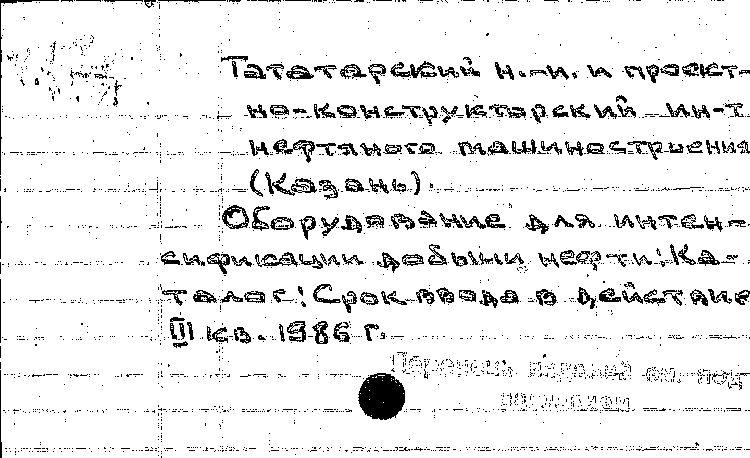 Тататарский н.-и. и проект-
но-конструкторский ин-т
нефтяного машиностроения
(Казань).
Оборудование для интен-
сификации добычи нефти: Ка-
талог: Срок ввода в действие
III кв. 1986 г.
Перечень изданий см. под